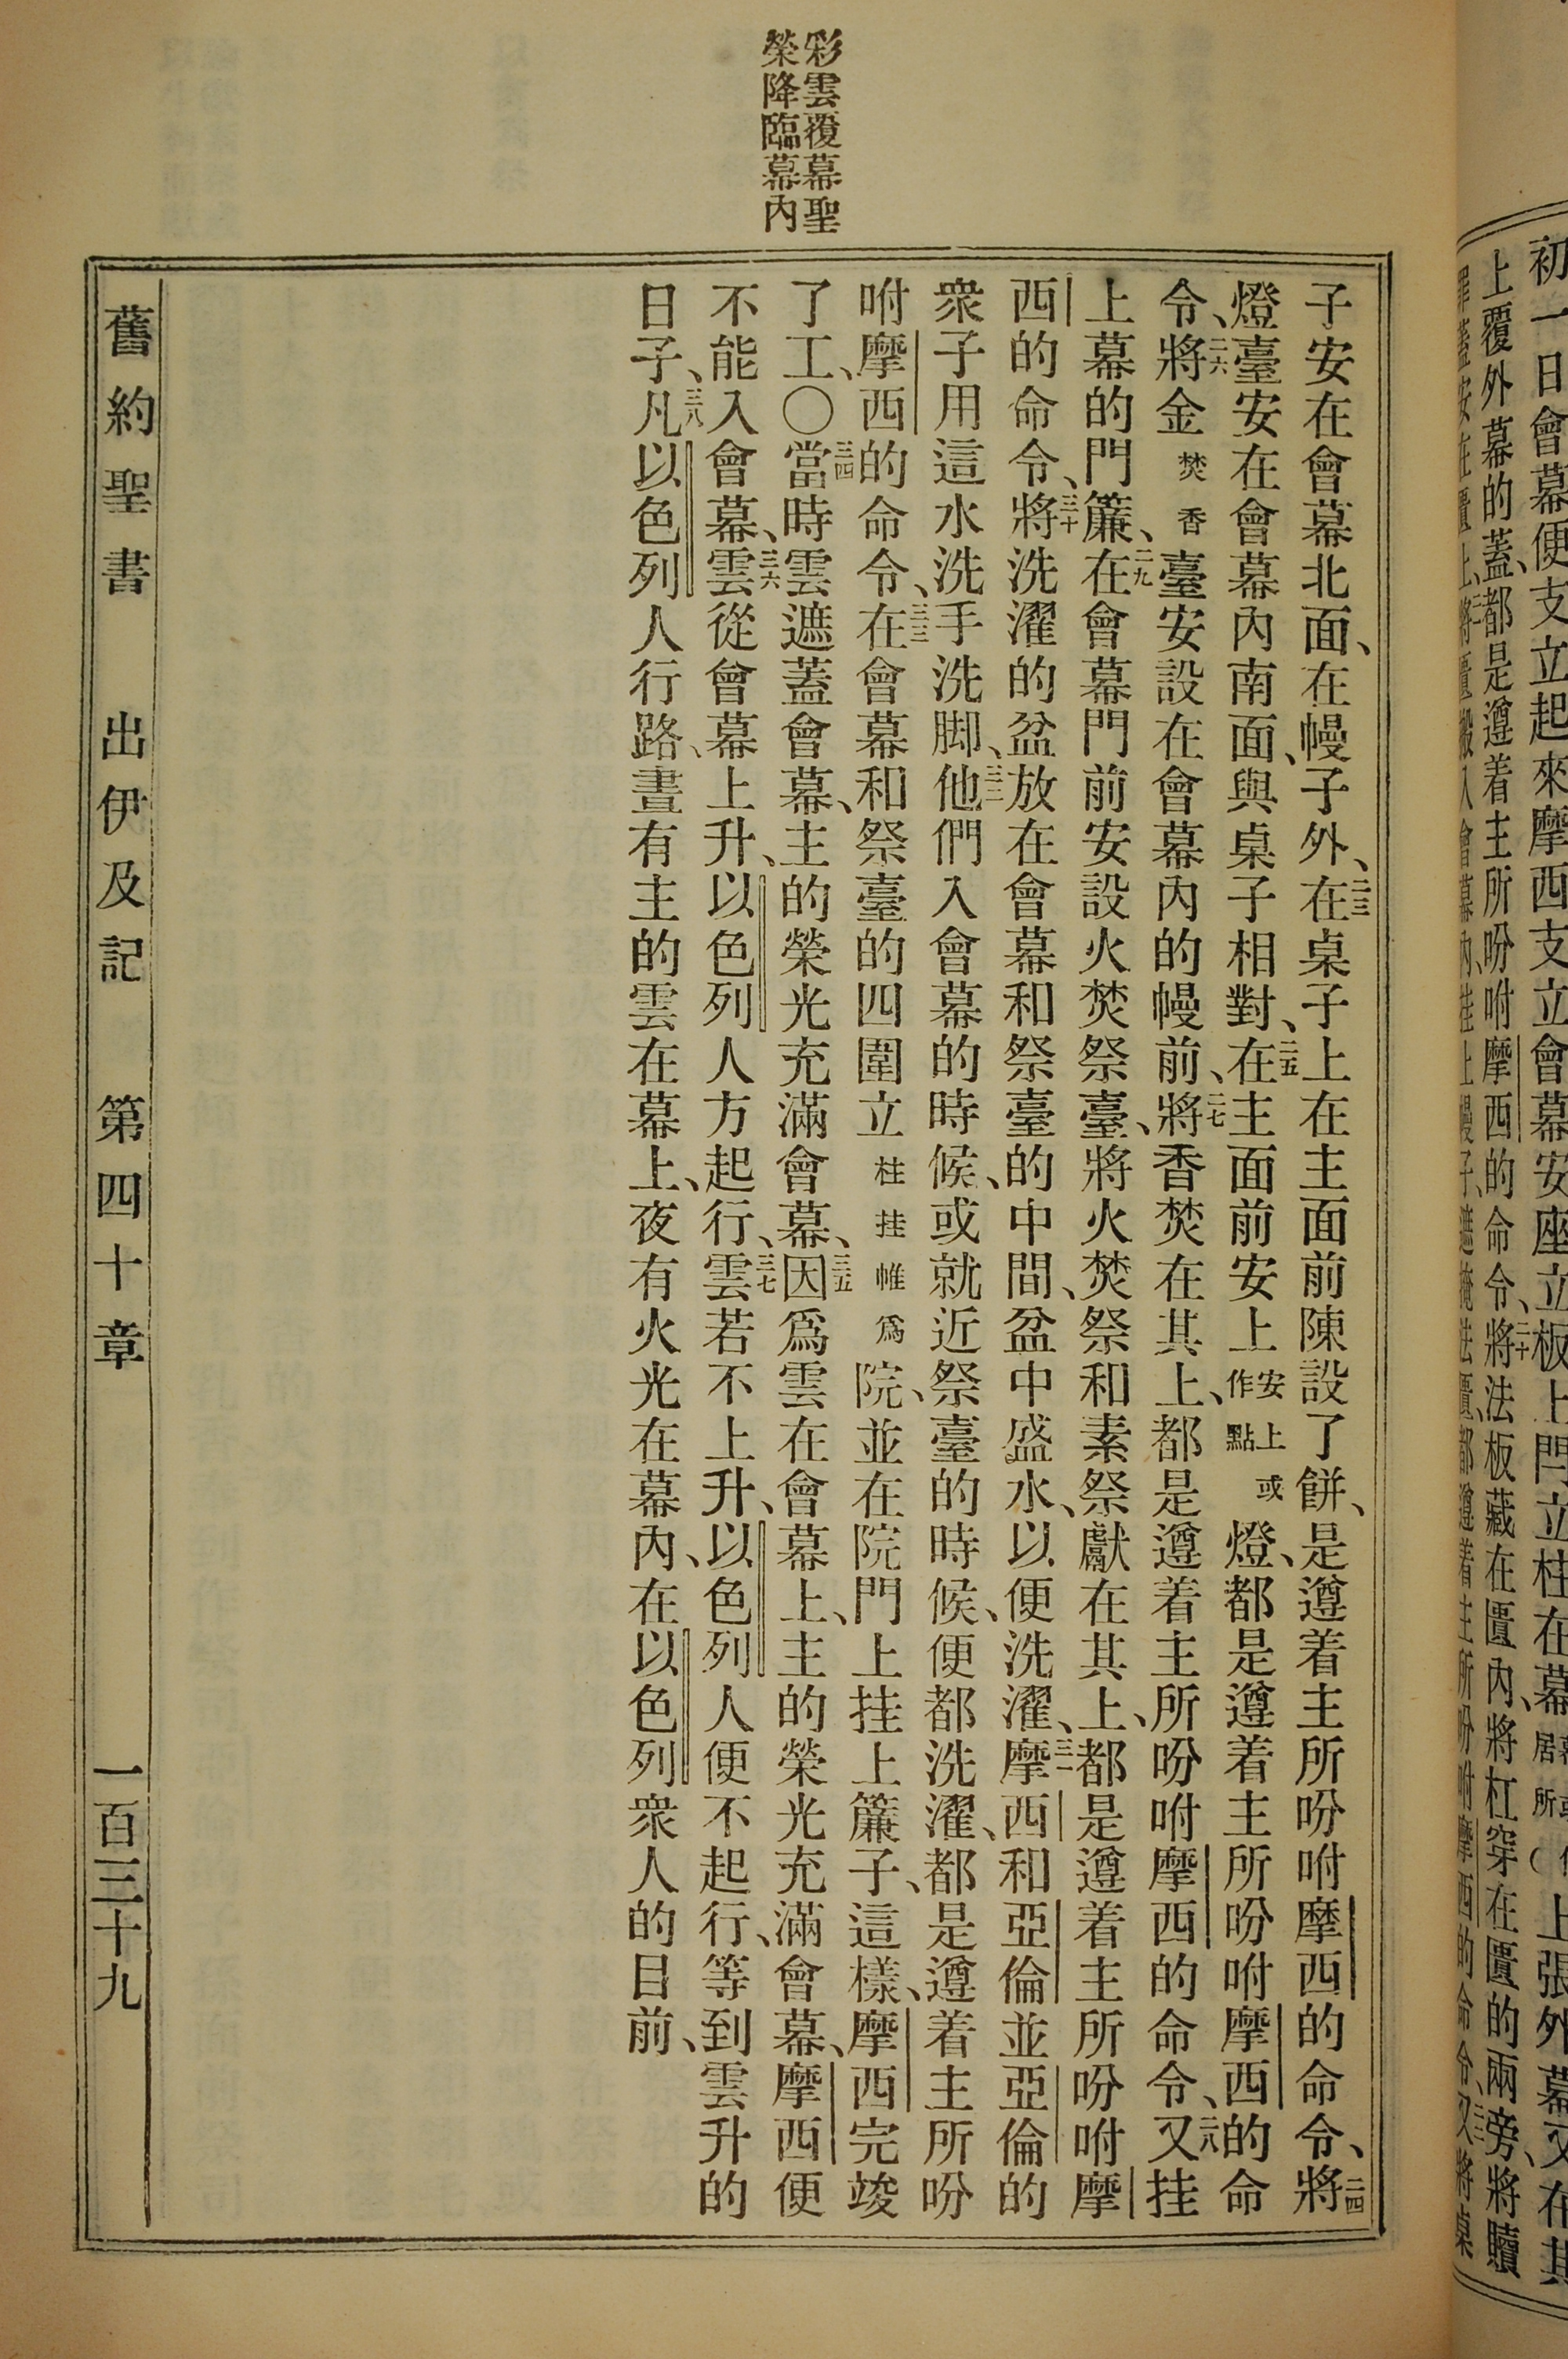 初一日會幕便支立起來摩西支立會幕安座立板上閂立柱在幕
上張外幕又在其
上覆外幕的蓋、都是遵着主所吩咐摩西的命令、二十將法板藏在匱內、將杠穿在匱的兩旁、將贖
彩雲覆幕聖
榮降臨幕內
子安在會幕北面、在幔子外、二三在桌子上在主面前陳設了餅、是遵着主所吩咐摩西的命令、二四將
燈臺安在會幕內南面、與桌子相對、二五在主面前安上安上或作點燈、都是遵着主所吩咐摩西的命
令、二六將金焚香臺安設在會幕內的幔前、二七將香焚在其上、都是遵着主所吩咐摩西的命令、二八又挂
上幕的門簾、二九在會幕門前安設火焚祭臺、將火焚祭和素祭獻在其上、都是遵着主所吩咐摩
西的命令、三十將洗濯的盆放在會幕和祭臺的中間、盆中盛水、以便洗濯、三一摩西和亞倫並亞倫的
衆子用這水洗手洗脚、三二他們入會幕的時候、或就近祭臺的時候、便都洗濯、都是遵着主所吩
咐摩西的命令、三三在會幕和祭臺的四圍立柱挂帷爲院、並在院門上挂上簾子、這樣、摩西完竣
了工、〇三四當時雲遮蓋會幕、主的榮光充滿會幕、三五因爲雲在會幕上、主的榮光充滿會幕、摩西便
不能入會幕、三六雲從會幕上升、以色列人方起行、三七雲若不上升、以色列人便不起行、等到雲升的
日子、三八凡以色列人行路、晝有主的雲在幕上、夜有火光在幕內、在以色列衆人的目前、
舊約聖書　出伊及記　第四十章　一百三十九